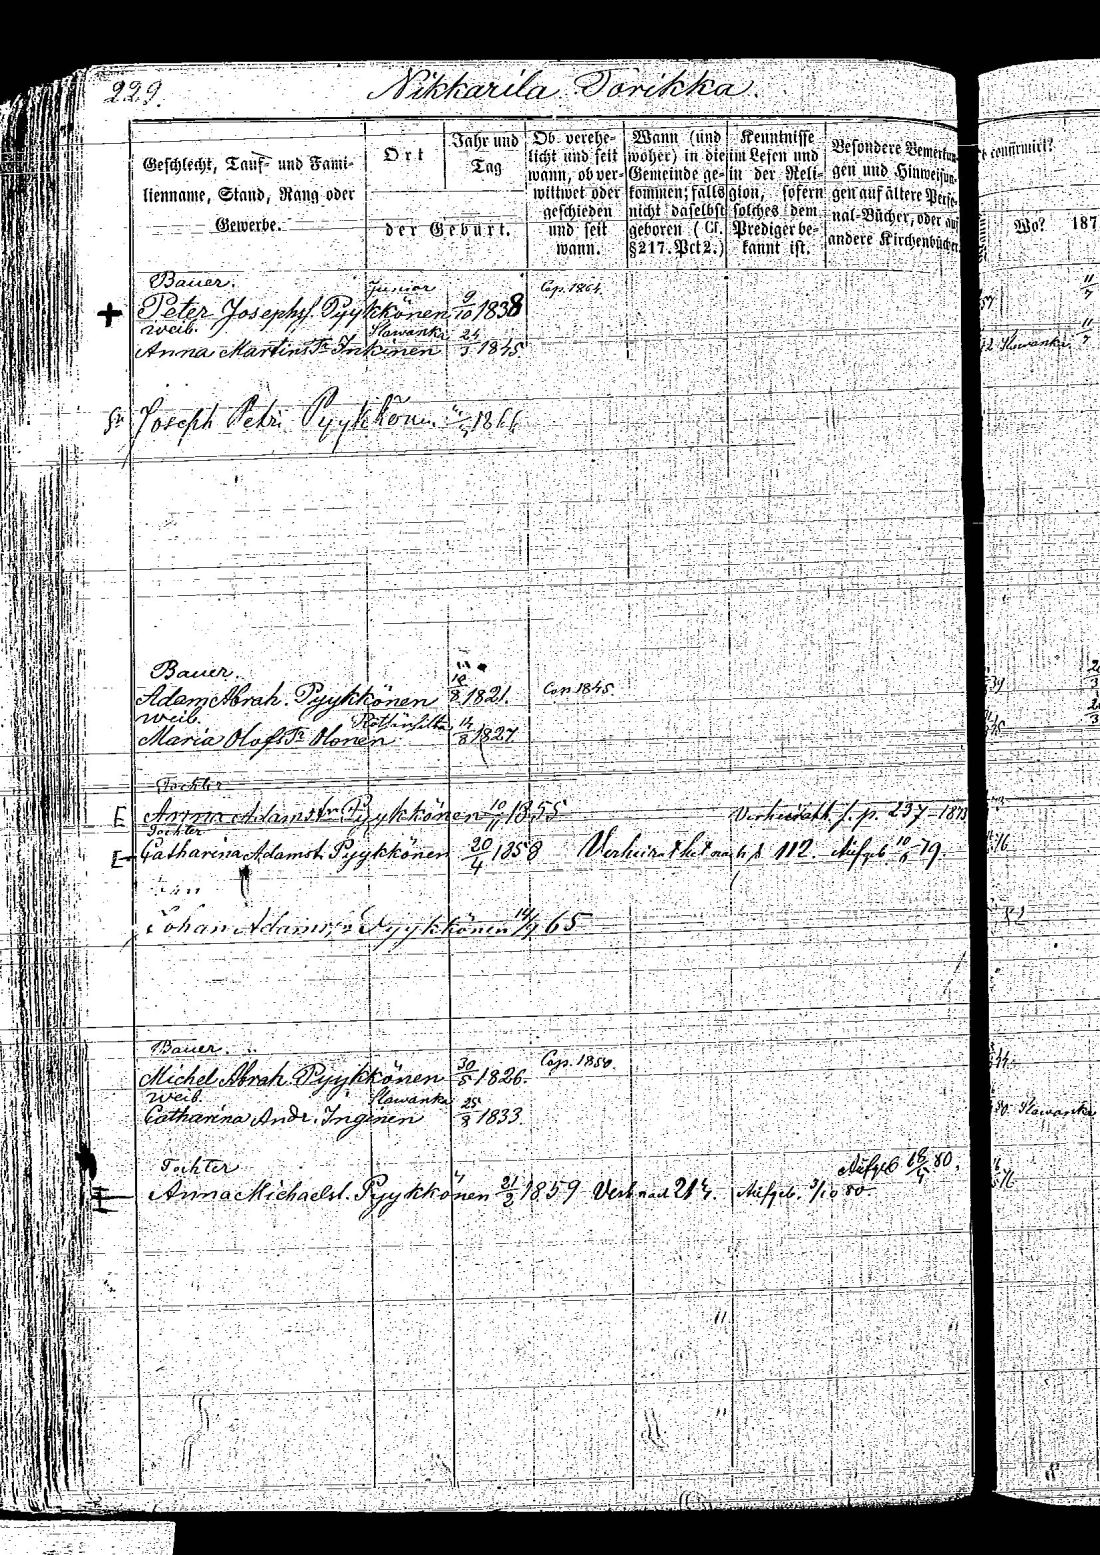 229.
Nikkarila Torikka.
Geschlecht, Tauf- und Fami-
lienname, Stand, Rang oder
Gewerbe.
Ort
Jahr und
Tag
der Geburt.
Ob verehe-
licht und seit
wann, ob ver-
wittwet oder
geschieden
und seit
wann.
Wann (und
woher) in die
Gemeinde ge-
kommen; falls
nicht daselbst
geboren (Cf.
§217. Pct2.)
Kenntnisse
im Lesen und
in der Reli-
gion, sofern
solches dem
Prediger be-
kannt ist.
Besondere Bemerkun-
gen und Hinweisun-
gen auf ältere Perso-
nal-Bücher, oder auf
andere Kirchenbücher.
confirmirt?
Wo?
187
Bauer. Junior
Peter Josephs. Pyykkönen 9/10 1838 Cop. 1864.
weib. Slawanka
Anna Martins Tr Inkinen 24/3 1845
Slawanka
Joseph Petri Pyykkönen 1866
Bauer.
Adam Abrah. Pyykkönen 12/8 1821. Cop. 1845.
weib.
Maria Olofs Tr Olonen 14/8 1827
Tochter
E Anna Adamstr Pyykkönen 10/11 1855 Verheirath. f. p. 237 - 1878
Tochter
E Catharina Adamst. Pyykkönen 20/4 1858 Verheirathet nach p 112. Aufgeb 10/6 79.
Johan Adams Pyykkönen 14/9 65
Bauer.
Michel Abrah. Pyykkönen 30/5 1826. Cop. 1850.
weib. Slawanka
Catharina Andr. Inginen 25/8 1833.
Slawanka
Tochter Aufgeb 18/4 80.
E Anna Michaelst. Pyykkönen 21/2 1859 Verh nach 214. Aufgeb. 3/10 80